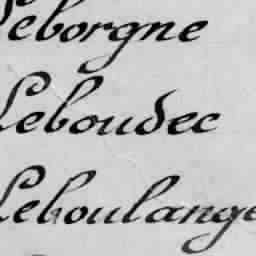 Leborgne
Leboudec
Leboulange